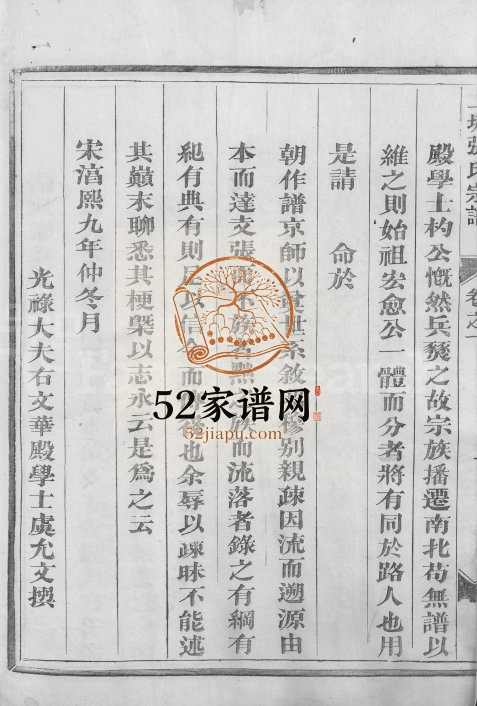 張氏宗譜
卷之一
殿學士杓公慨然兵燹之故宗族播遷南北苟無譜以
維之則始祖宏愈公一體而分者將有同於路人也用
是請　命於
朝作譜京師以奠世系敘
別親疎因流而遡源由
本而達支張
不族者黜
族而流落者錄之有綱有
紀有典有則足以信今而
後也余辱以疎昧不能述
其巔末聊悉其梗槩以志永云是爲之云
宋淳熙九年仲冬月
光祿大夫右文華殿學士虞允文撰
52家谱网
52jiapu.com